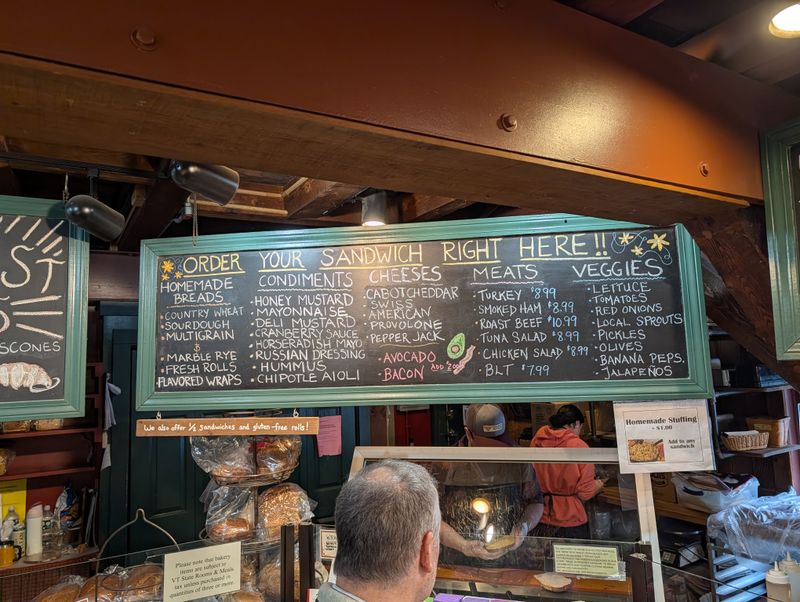 ST
SCONES
ORDER YOUR SANDWICH RIGHT HERE!!
HOMEMADE
BREADS
· COUNTRY WHEAT
· SOURDOUGH
· MULTIGRAIN
&
· MARBLE RYE
· FRESH ROLLS
FLAVORED WRAPS
CONDIMENTS
· HONEY MUSTARD
· MAYONNAISE
· DELI MUSTARD
· CRANBERRY SAUCE
· HORSERADISH MAYO
· RUSSIAN DRESSING
· HUMMUS
· CHIPOTLE AIOLI
CHEESES
· CABOT CHEDDAR
· SWISS
· AMERICAN
· PROVOLONE
· PEPPER JACK
· AVOCADO
· BACON
MEATS
· TURKEY $8.99
· SMOKED HAM $8.99
· ROAST BEEF $10.99
· TUNA SALAD $8.99
· CHICKEN SALAD $8.99
· BLT $7.99
VEGGIES
· LETTUCE
· TOMATOES
· RED ONIONS
· LOCAL SPROUTS
· PICKLES
· OLIVES
· BANANA PEPS.
· JALAPEÑOS
We also offer ½ sandwiches and gluten-free rolls!
Homemade Stuffing
- $1.00
Add to any
sandwich
Please note that bakery
items are subject to
VT State Rooms & Meals
tax unless purchased in
quantities of three or more.